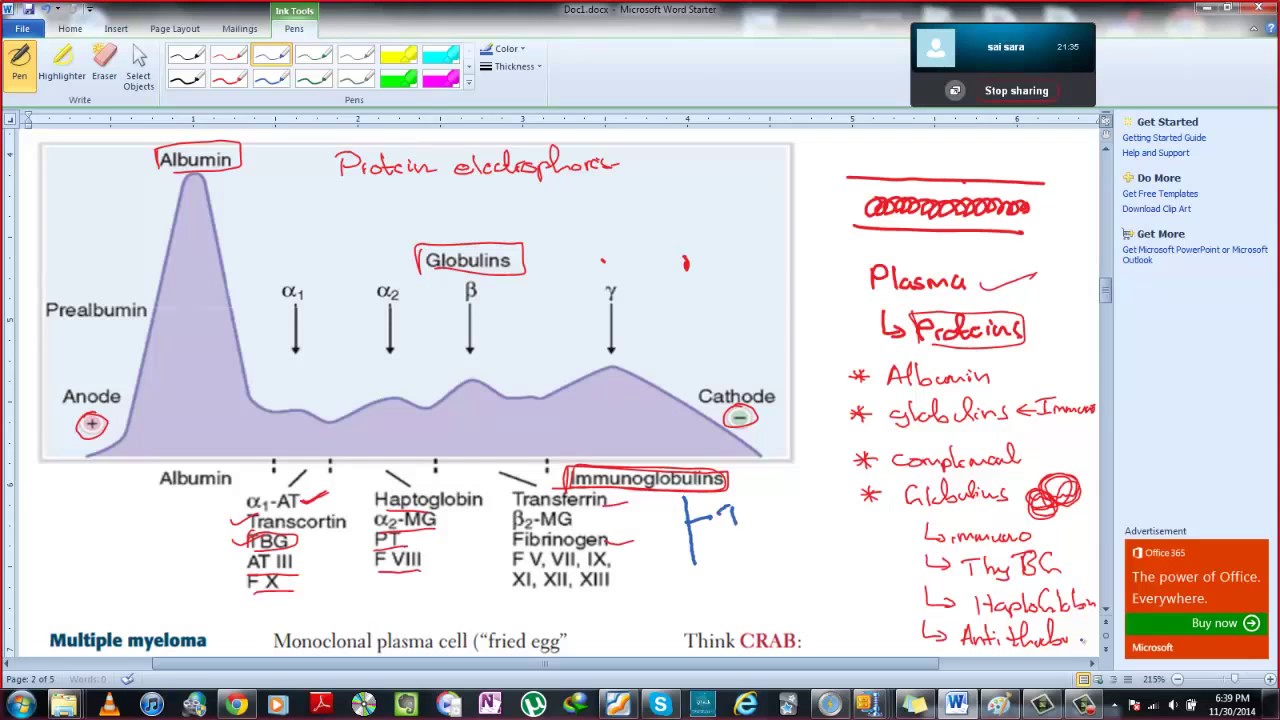 Doc1.docx - Microsoft Word Starter
Ink Tools
File Home Insert Page Layout Mailings Pens
Pen Highlighter Eraser Select Objects
Color
Thickness
Write Pens
sai sara 21:35
Stop sharing
1 2 3 4 5 6
Albumin
Protein
Globulins
α1 α2 β γ
Prealbumin
Anode
+
Cathode
−
Albumin
Immunoglobulins
α1-AT
Transcortin
TBG
AT III
F X
Haptoglobin
α2-MG
PT
F VIII
Transferrin
β2-MG
Fibrinogen
F V, VII, IX,
XI, XII, XIII
Multiple myeloma Monoclonal plasma cell (“fried egg” Think CRAB:
Plasma
Proteins
* Albumin
* globulins ← Immuno
*
* Globulins
immuno
Thy BG
Getting Started
Getting Started Guide
Help and Support
Do More
Get Free Templates
Download Clip Art
Get More
Get Microsoft PowerPoint or Microsoft
Outlook
Advertisement
Office 365
The power of Office.
Everywhere.
Buy now
Microsoft
Page: 2 of 5 Words: 0
215%
6:39 PM
11/30/2014